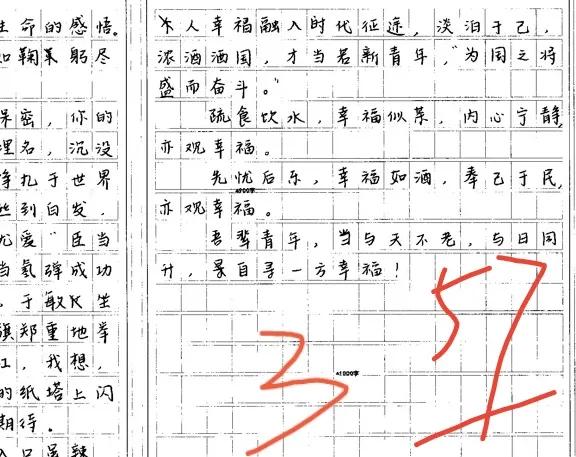 生命的感悟。
如鞠躬尽
保密，你的
埋名，沉没
挣扎于世界
丝到白发，
尤爱"臣当
当氢弹成功
，于敏从生
旗郑重地举
红，我想，
的纸塔上闪
期待。
入口虽辣
个人幸福融入时代征途，淡泊于己，
浓酒洒国，才当若新青年，"为国之将
盛而奋斗。"
疏食饮水，幸福似茶，内心宁静，
亦观幸福。
先忧后乐，幸福如酒，奉己于民，
▲900字
亦观幸福。
吾辈青年，当与天不老，与日同
升，景自寻一方幸福！
▲1000字
3
57